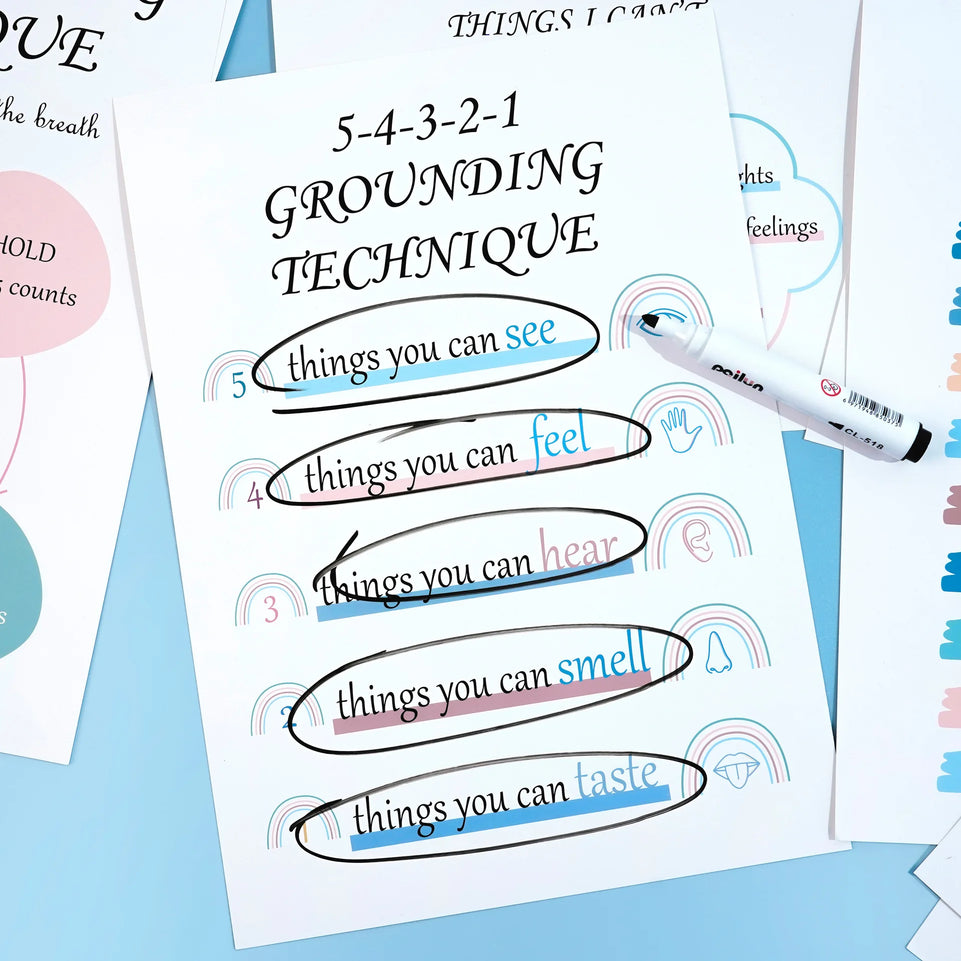 QUE
the breath
HOLD
5 counts
THINGS I CAN'T
5-4-3-2-1
GROUNDING
TECHNIQUE
5 things you can see
4 things you can feel
3 things you can hear
2 things you can smell
1 things you can taste
ghts
feelings
CL-518